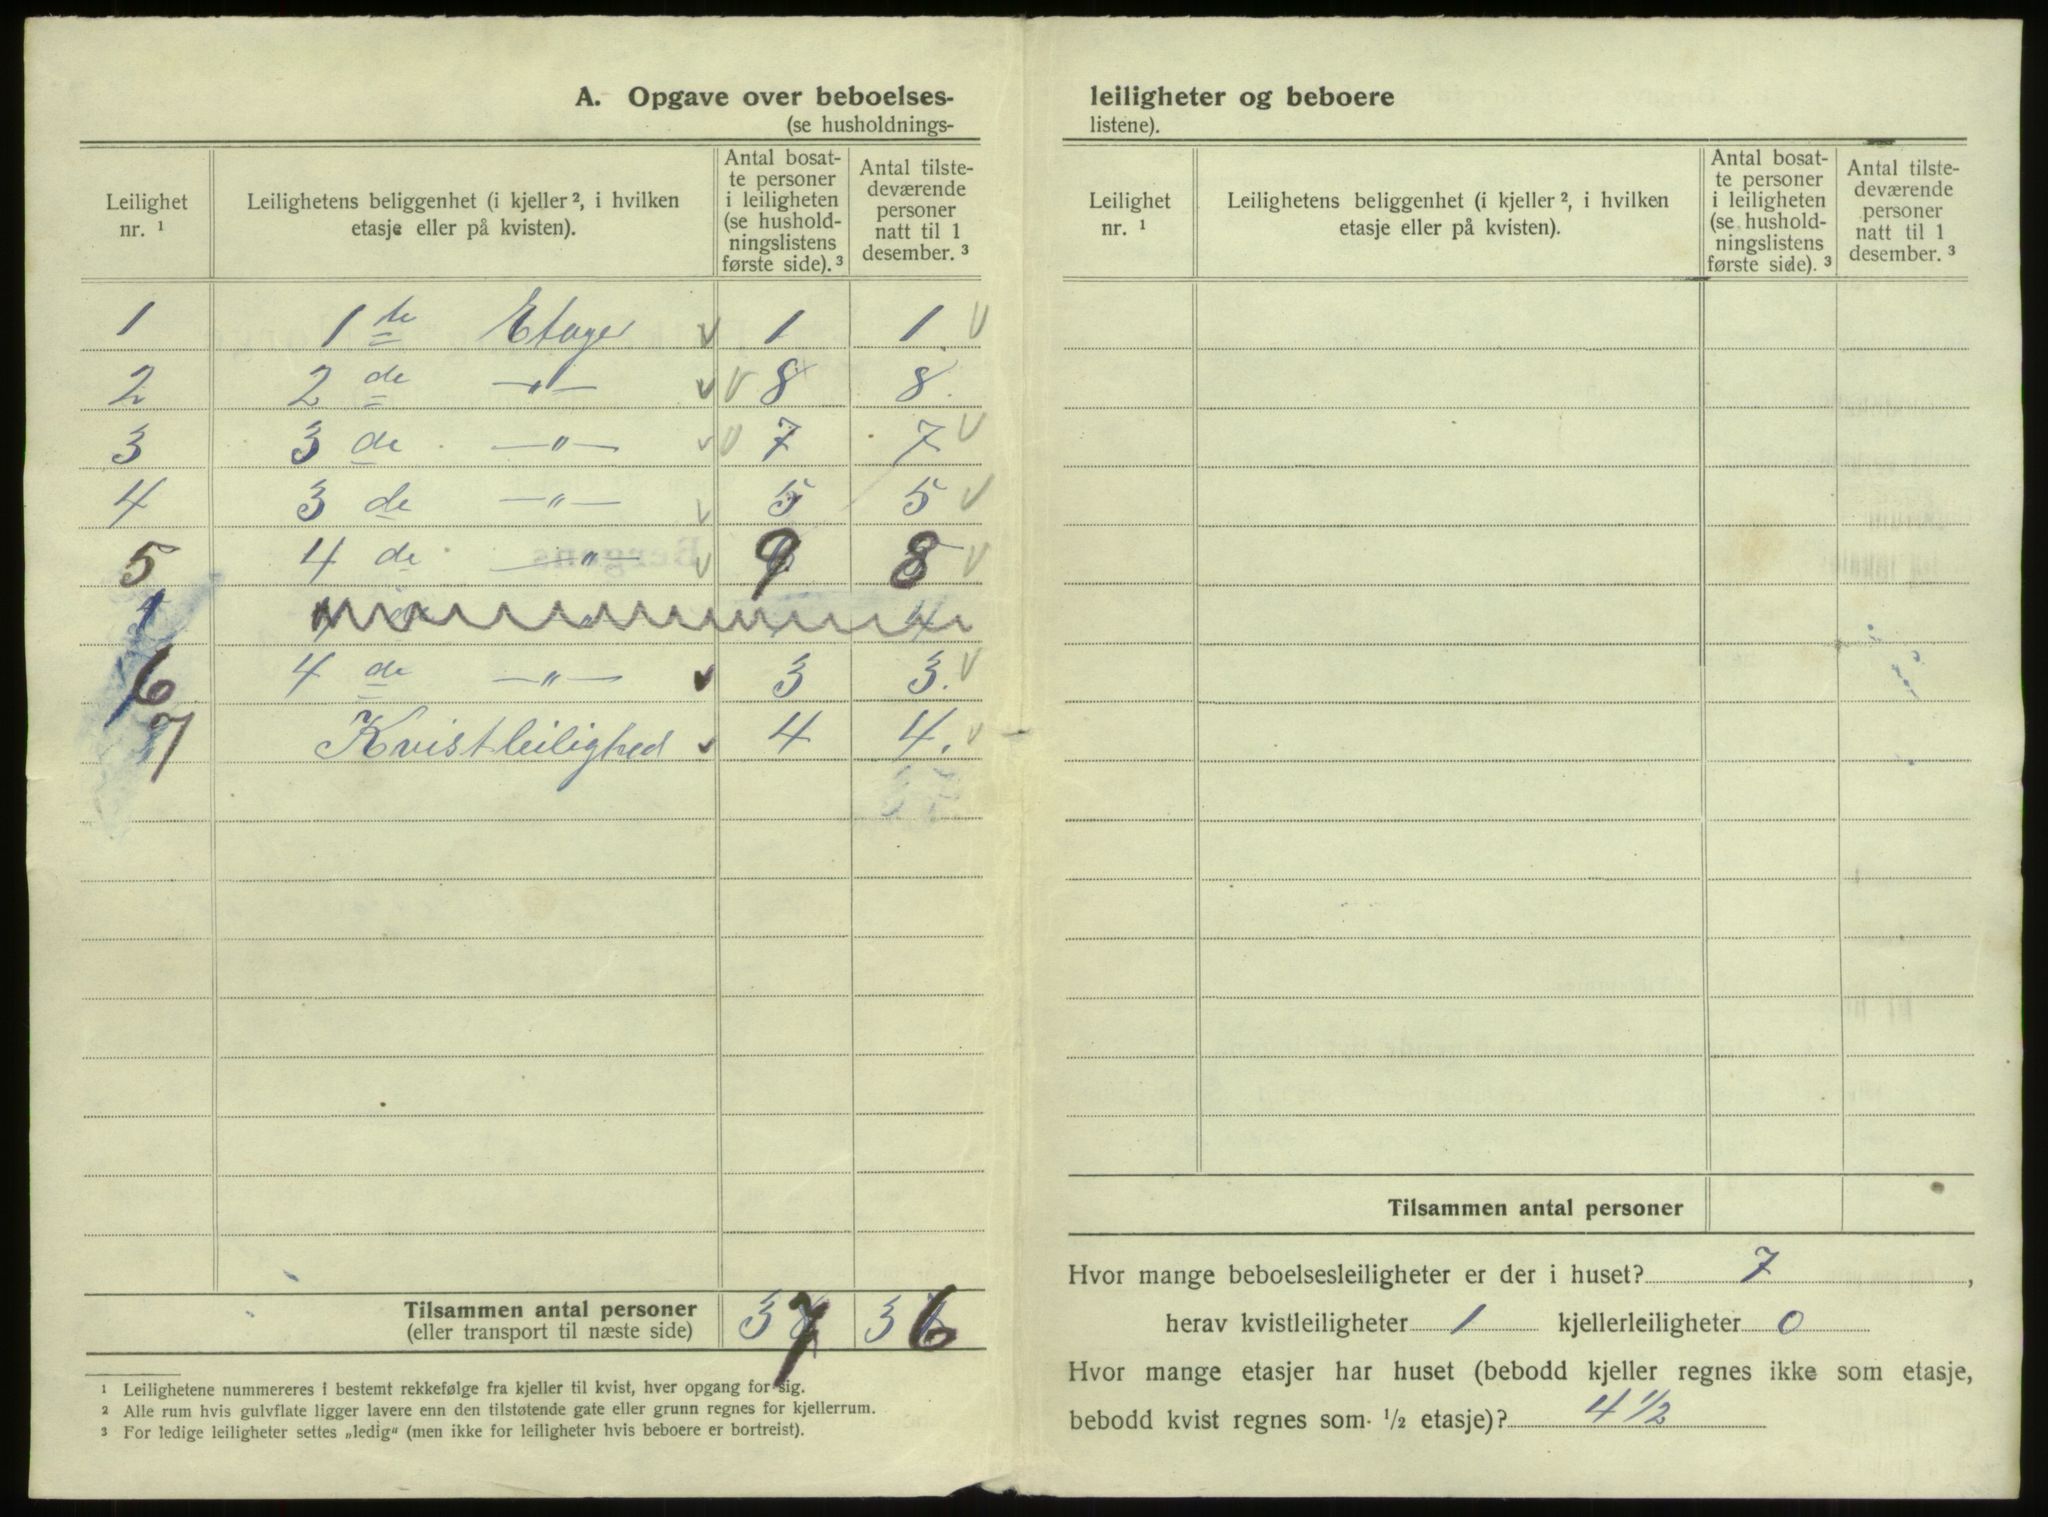 A. Opgave over beboelses-
(se husholdnings-
Leilighet nr. ¹
Leilighetens beliggenhet (i kjeller ², i hvilken etasje eller på kvisten).
Antal bosat-
te personer
i leiligheten
(se hushold-
ningslistens
første side). ³
Antal tilste-
deværende
personer
natt til 1
desember. ³
1 1 te Etage v 1 1. v
2 2 de —"— v v 8 8.
3 3 de —"— v v 7 7 v
4 3 de —"— v 5 5 v
5 4 de —"— v 9 8 v
4
6 4 de —"— v 3 3. v
7 Kvistleilighed v 4 4. v
Tilsammen antal personer 37 36
(eller transport til næste side)
¹ Leilighetene nummereres i bestemt rekkefølge fra kjeller til kvist, hver opgang for sig.
² Alle rum hvis gulvflate ligger lavere enn den tilstøtende gate eller grunn regnes for kjellerrum.
³ For ledige leiligheter settes „ledig" (men ikke for leiligheter hvis beboere er bortreist).
leiligheter og beboere
listene).
Leilighet nr. ¹
Leilighetens beliggenhet (i kjeller ², i hvilken etasje eller på kvisten).
Antal bosat-
te personer
i leiligheten
(se hushold-
ningslistens
første side). ³
Antal tilste-
deværende
personer
natt til 1
desember. ³
Tilsammen antal personer
Hvor mange beboelsesleiligheter er der i huset? 7,
herav kvistleiligheter 1 kjellerleiligheter 0
Hvor mange etasjer har huset (bebodd kjeller regnes ikke som etasje,
bebodd kvist regnes som ½ etasje)? 4 ½